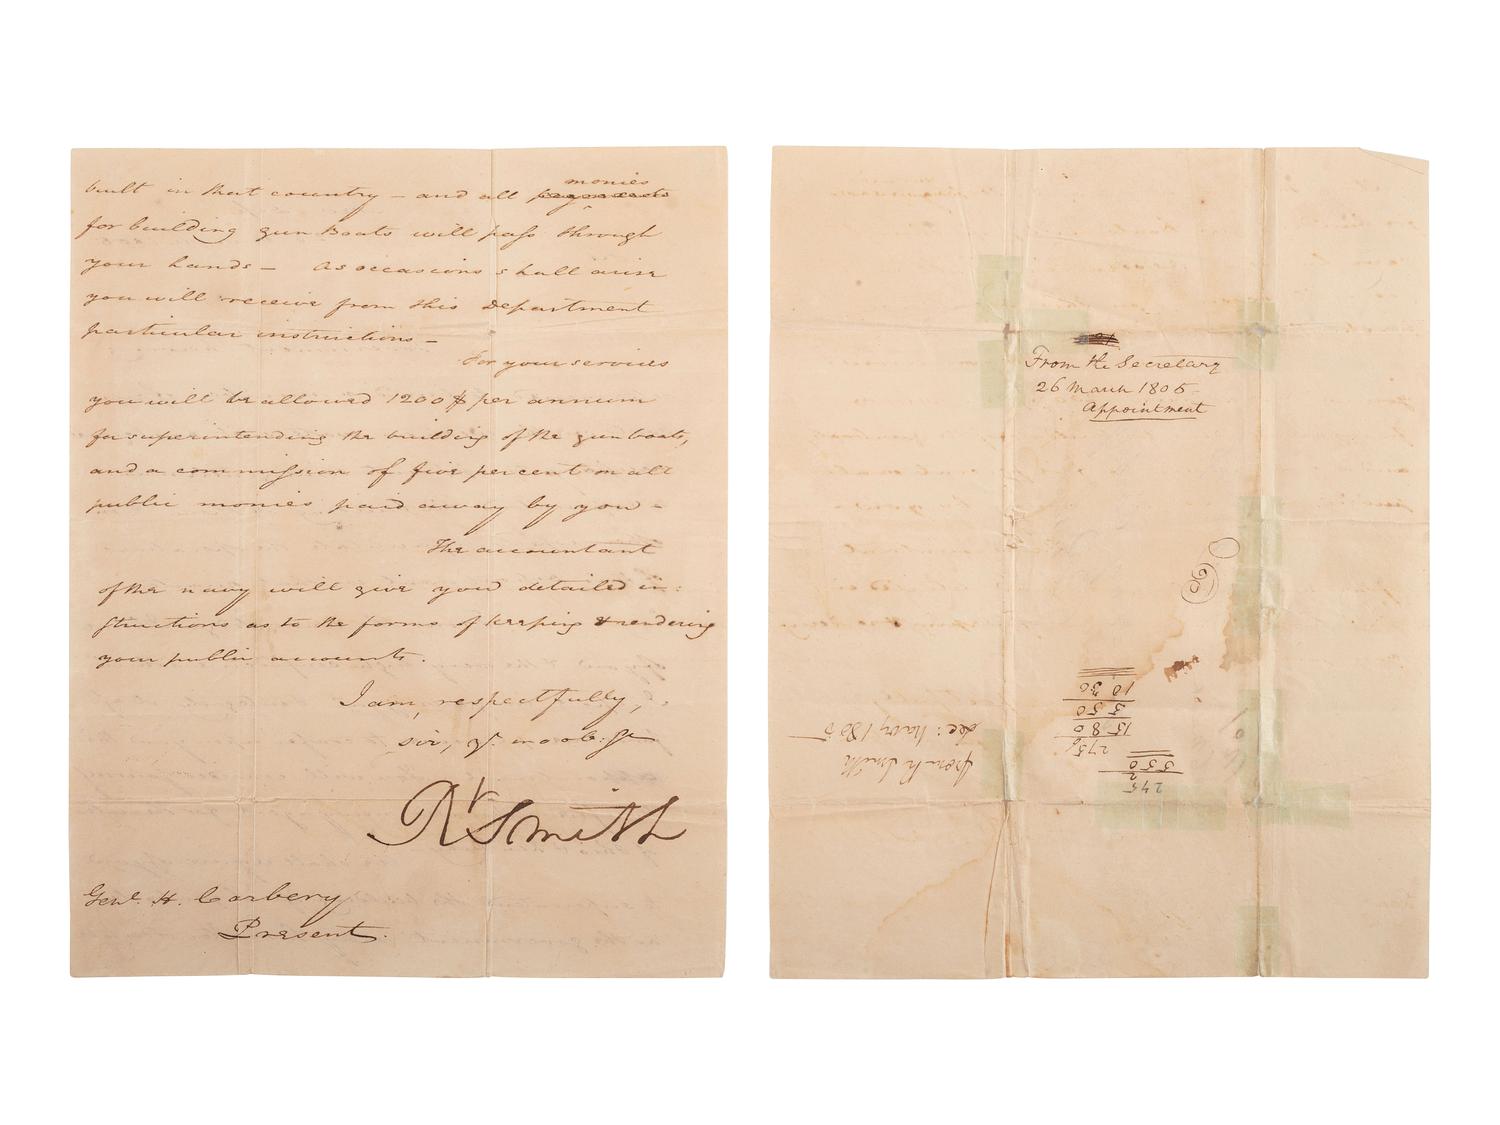 built in that country – and all payments monies
for building gun boats will pass through
your hands – As occasions shall arise
you will receive from this department
particular instructions –
For your services
you will be allowed 1200 $ per annum
for superintending the building of the gun boats,
and a commission of five per cent on all
public monies paid away by you –
The accountant
of the navy will give you detailed in:
structions as to the forms of keeping & rendering
your public accounts.
I am, respectfully,
sir, yr. mo ob: St
Rt Smith
Genl. H. Carbery
Present.
From the Secretary
26 March 1805
Appointment
from R Smith
Sec: Navy 1805
245
2
550
275
1380
350
1030